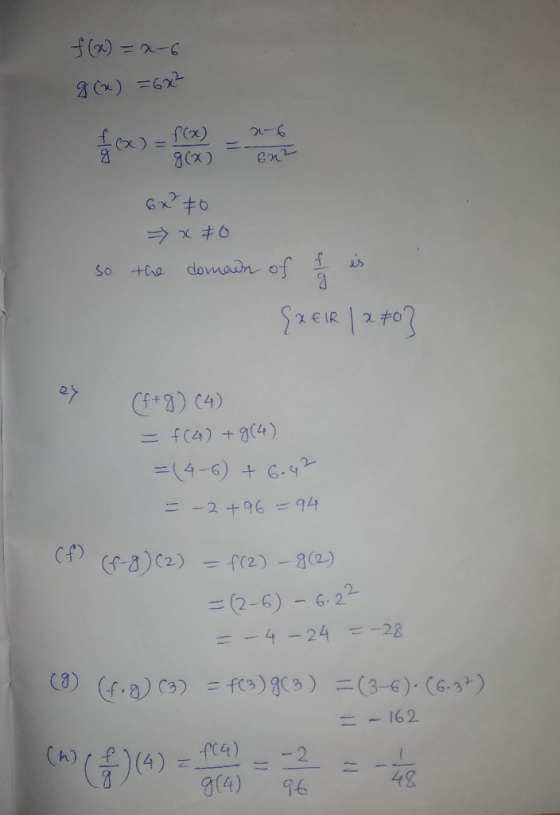 f(x) = x-6
g(x) = 6x²
f/g (x) = f(x)/g(x) = x-6/6x²
6x² ≠ 0
⇒ x ≠ 0
so the domain of f/g is
{x ∈ ℝ | x ≠ 0}
e) (f+g) (4)
= f(4) + g(4)
= (4-6) + 6·4²
= -2 + 96 = 94
(f) (f-g)(2) = f(2) - g(2)
= (2-6) - 6·2²
= -4 - 24 = -28
(g) (f·g) (3) = f(3) g(3) = (3-6)·(6·3²)
= -162
(h) (f/g)(4) = f(4)/g(4) = -2/96 = -1/48